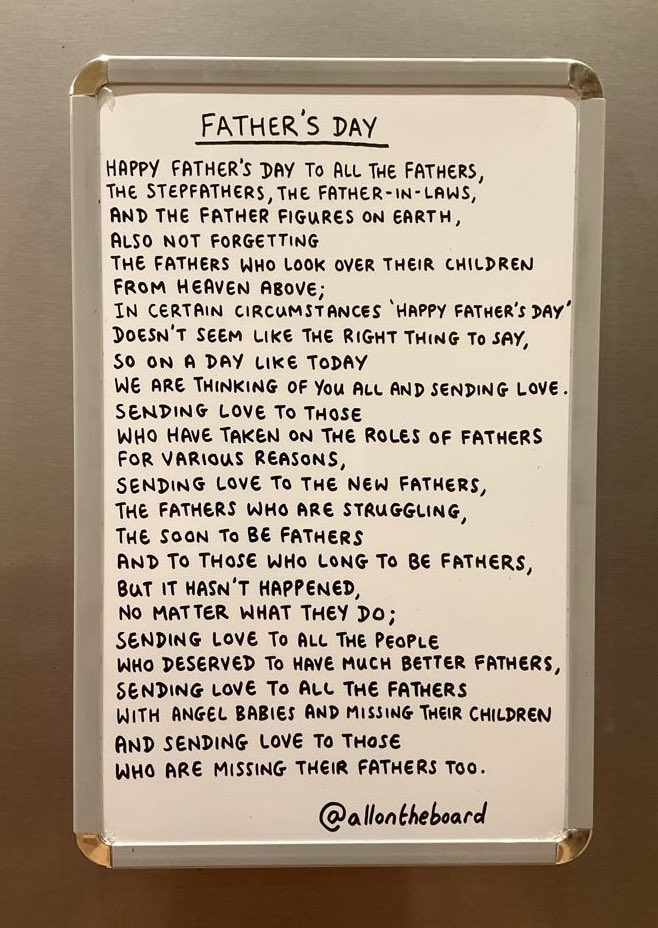 FATHER'S DAY
HAPPY FATHER'S DAY TO ALL THE FATHERS,
THE STEPFATHERS, THE FATHER-IN-LAWS,
AND THE FATHER FIGURES ON EARTH,
ALSO NOT FORGETTING
THE FATHERS WHO LOOK OVER THEIR CHILDREN
FROM HEAVEN ABOVE;
IN CERTAIN CIRCUMSTANCES 'HAPPY FATHER'S DAY'
DOESN'T SEEM LIKE THE RIGHT THING TO SAY,
SO ON A DAY LIKE TODAY
WE ARE THINKING OF YOU ALL AND SENDING LOVE.
SENDING LOVE TO THOSE
WHO HAVE TAKEN ON THE ROLES OF FATHERS
FOR VARIOUS REASONS,
SENDING LOVE TO THE NEW FATHERS,
THE FATHERS WHO ARE STRUGGLING,
THE SOON TO BE FATHERS
AND TO THOSE WHO LONG TO BE FATHERS,
BUT IT HASN'T HAPPENED,
NO MATTER WHAT THEY DO;
SENDING LOVE TO ALL THE PEOPLE
WHO DESERVED TO HAVE MUCH BETTER FATHERS,
SENDING LOVE TO ALL THE FATHERS
WITH ANGEL BABIES AND MISSING THEIR CHILDREN
AND SENDING LOVE TO THOSE
WHO ARE MISSING THEIR FATHERS TOO.
@allontheboard